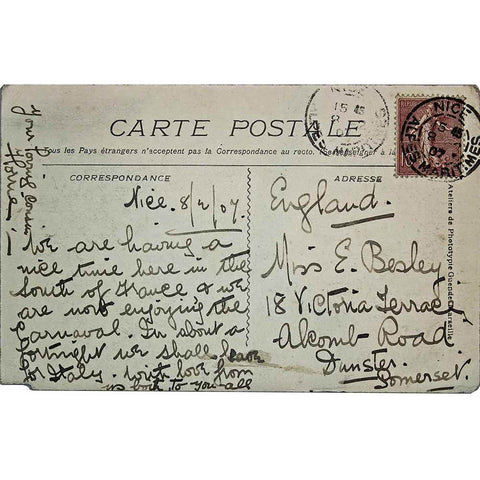 CARTE POSTALE
Tous les Pays étrangers n'acceptent pas la Correspondance au recto.
CORRESPONDANCE
Nice. 8/2/07.
We are having a
nice time here in the
South of France & we
are now enjoying the
Carnaval. In about a
fortnight we shall leave
for Italy. With love from
us both to you all
Your loving cousin
ADRESSE
England.
Miss E. Besley
18 Victoria Terrace
Alcomb Road
Dunster.
Somerset.
NICE
15 45
8
07
ALPES MARITIMES
NICE
15 45
8
ALPES MARITIMES
Ateliers de Phototypie Guende Marseille